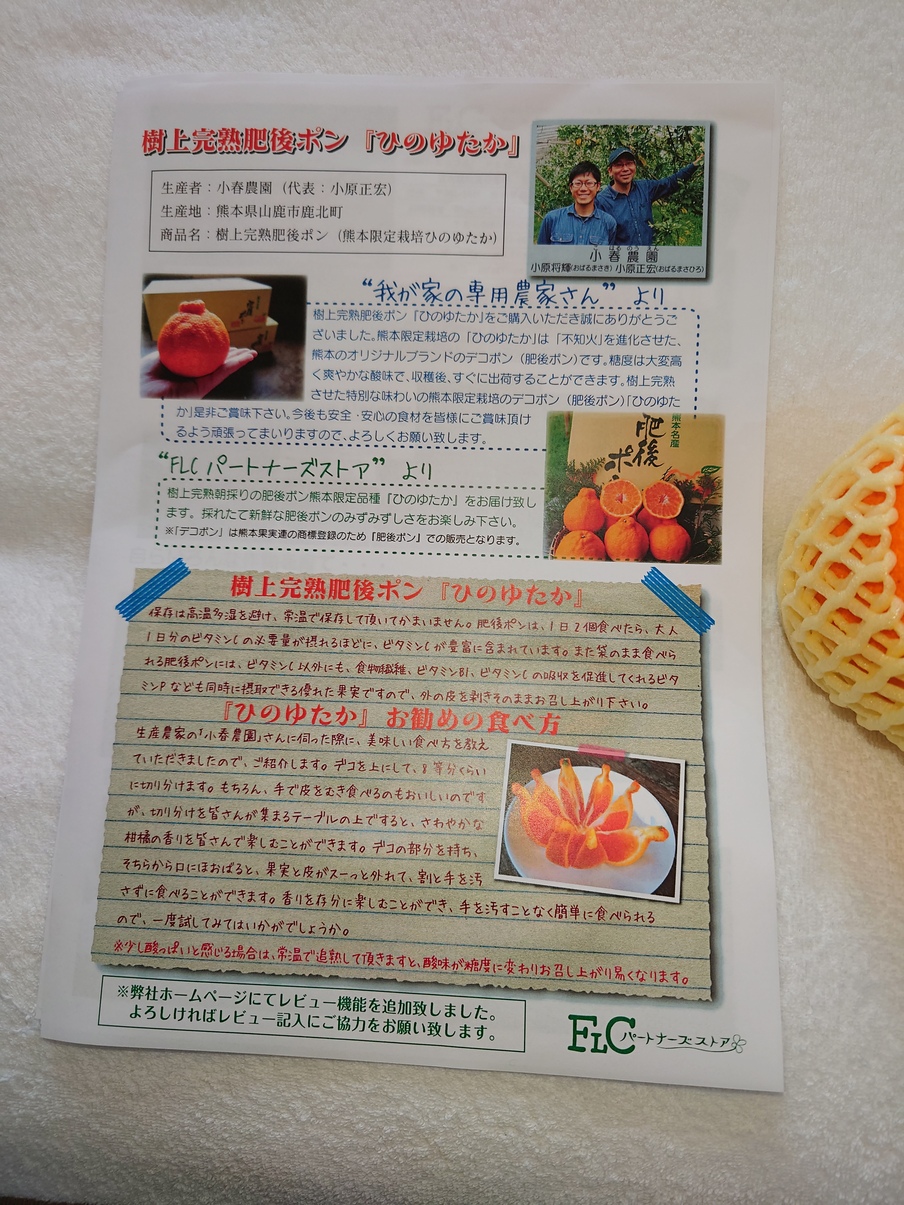 樹上完熟肥後ポン『ひのゆたか』
生産者：小春農園（代表：小原正宏）
生産地：熊本県山鹿市鹿北町
商品名：樹上完熟肥後ポン（熊本限定栽培ひのゆたか）
こ はる のう えん
小春農園
小原将輝(おばるまさき) 小原正宏(おばるまさひろ)
“我が家の専用農家さん” より
樹上完熟肥後ポン「ひのゆたか」をご購入いただき誠にありがとうご
ざいました。熊本限定栽培の「ひのゆたか」は「不知火」を進化させた、
熊本のオリジナルブランドのデコポン（肥後ポン）です。糖度は大変高
く爽やかな酸味で、収穫後、すぐに出荷することができます。樹上完熟
させた特別な味わいの熊本限定栽培のデコポン（肥後ポン）「ひのゆた
か」是非ご賞味下さい。今後も安全・安心の食材を皆様にご賞味頂け
るよう頑張ってまいりますので、よろしくお願い致します。
熊本名産
肥後
ポ
“FLC パートナーズストア” より
樹上完熟朝採りの肥後ポン熊本限定品種「ひのゆたか」をお届け致し
ます。採れたて新鮮な肥後ポンのみずみずしさをお楽しみ下さい。
※「デコポン」は熊本果実連の商標登録のため「肥後ポン」での販売となります。
樹上完熟肥後ポン『ひのゆたか』
保存は高温多湿を避け、常温で保存して頂いてかまいません。肥後ポンは、1日2個食べたら、大人
1日分のビタミンCの必要量が摂れるほどに、ビタミンCが豊富に含まれています。また袋のまま食べら
れる肥後ポンには、ビタミンC以外にも、食物繊維、ビタミンB1、ビタミンCの吸収を促進してくれるビタ
ミンPなども同時に摂取できる優れた果実ですので、外の皮を剥きそのままお召し上がり下さい。
『ひのゆたか』お勧めの食べ方
生産農家の「小春農園」さんに伺った際に、美味しい食べ方を教え
ていただきましたので、ご紹介します。デコを上にして、8等分くらい
に切り分けます。もちろん、手で皮をむき食べるのもおいしいのです
が、切り分けを皆さんが集まるテーブルの上ですると、さわやかな
柑橘の香りを皆さんで楽しむことができます。デコの部分を持ち、
そちらから口にほおばると、果実と皮がスーっと外れて、割と手を汚
さずに食べることができます。香りを存分に楽しむことができ、手を汚すことなく簡単に食べられる
ので、一度試してみてはいかがでしょうか。
※少し酸っぱいと感じる場合は、常温で追熟して頂きますと、酸味が糖度に変わりお召し上がり易くなります。
※弊社ホームページにてレビュー機能を追加致しました。
よろしければレビュー記入にご協力をお願い致します。
FLCパートナーズストア